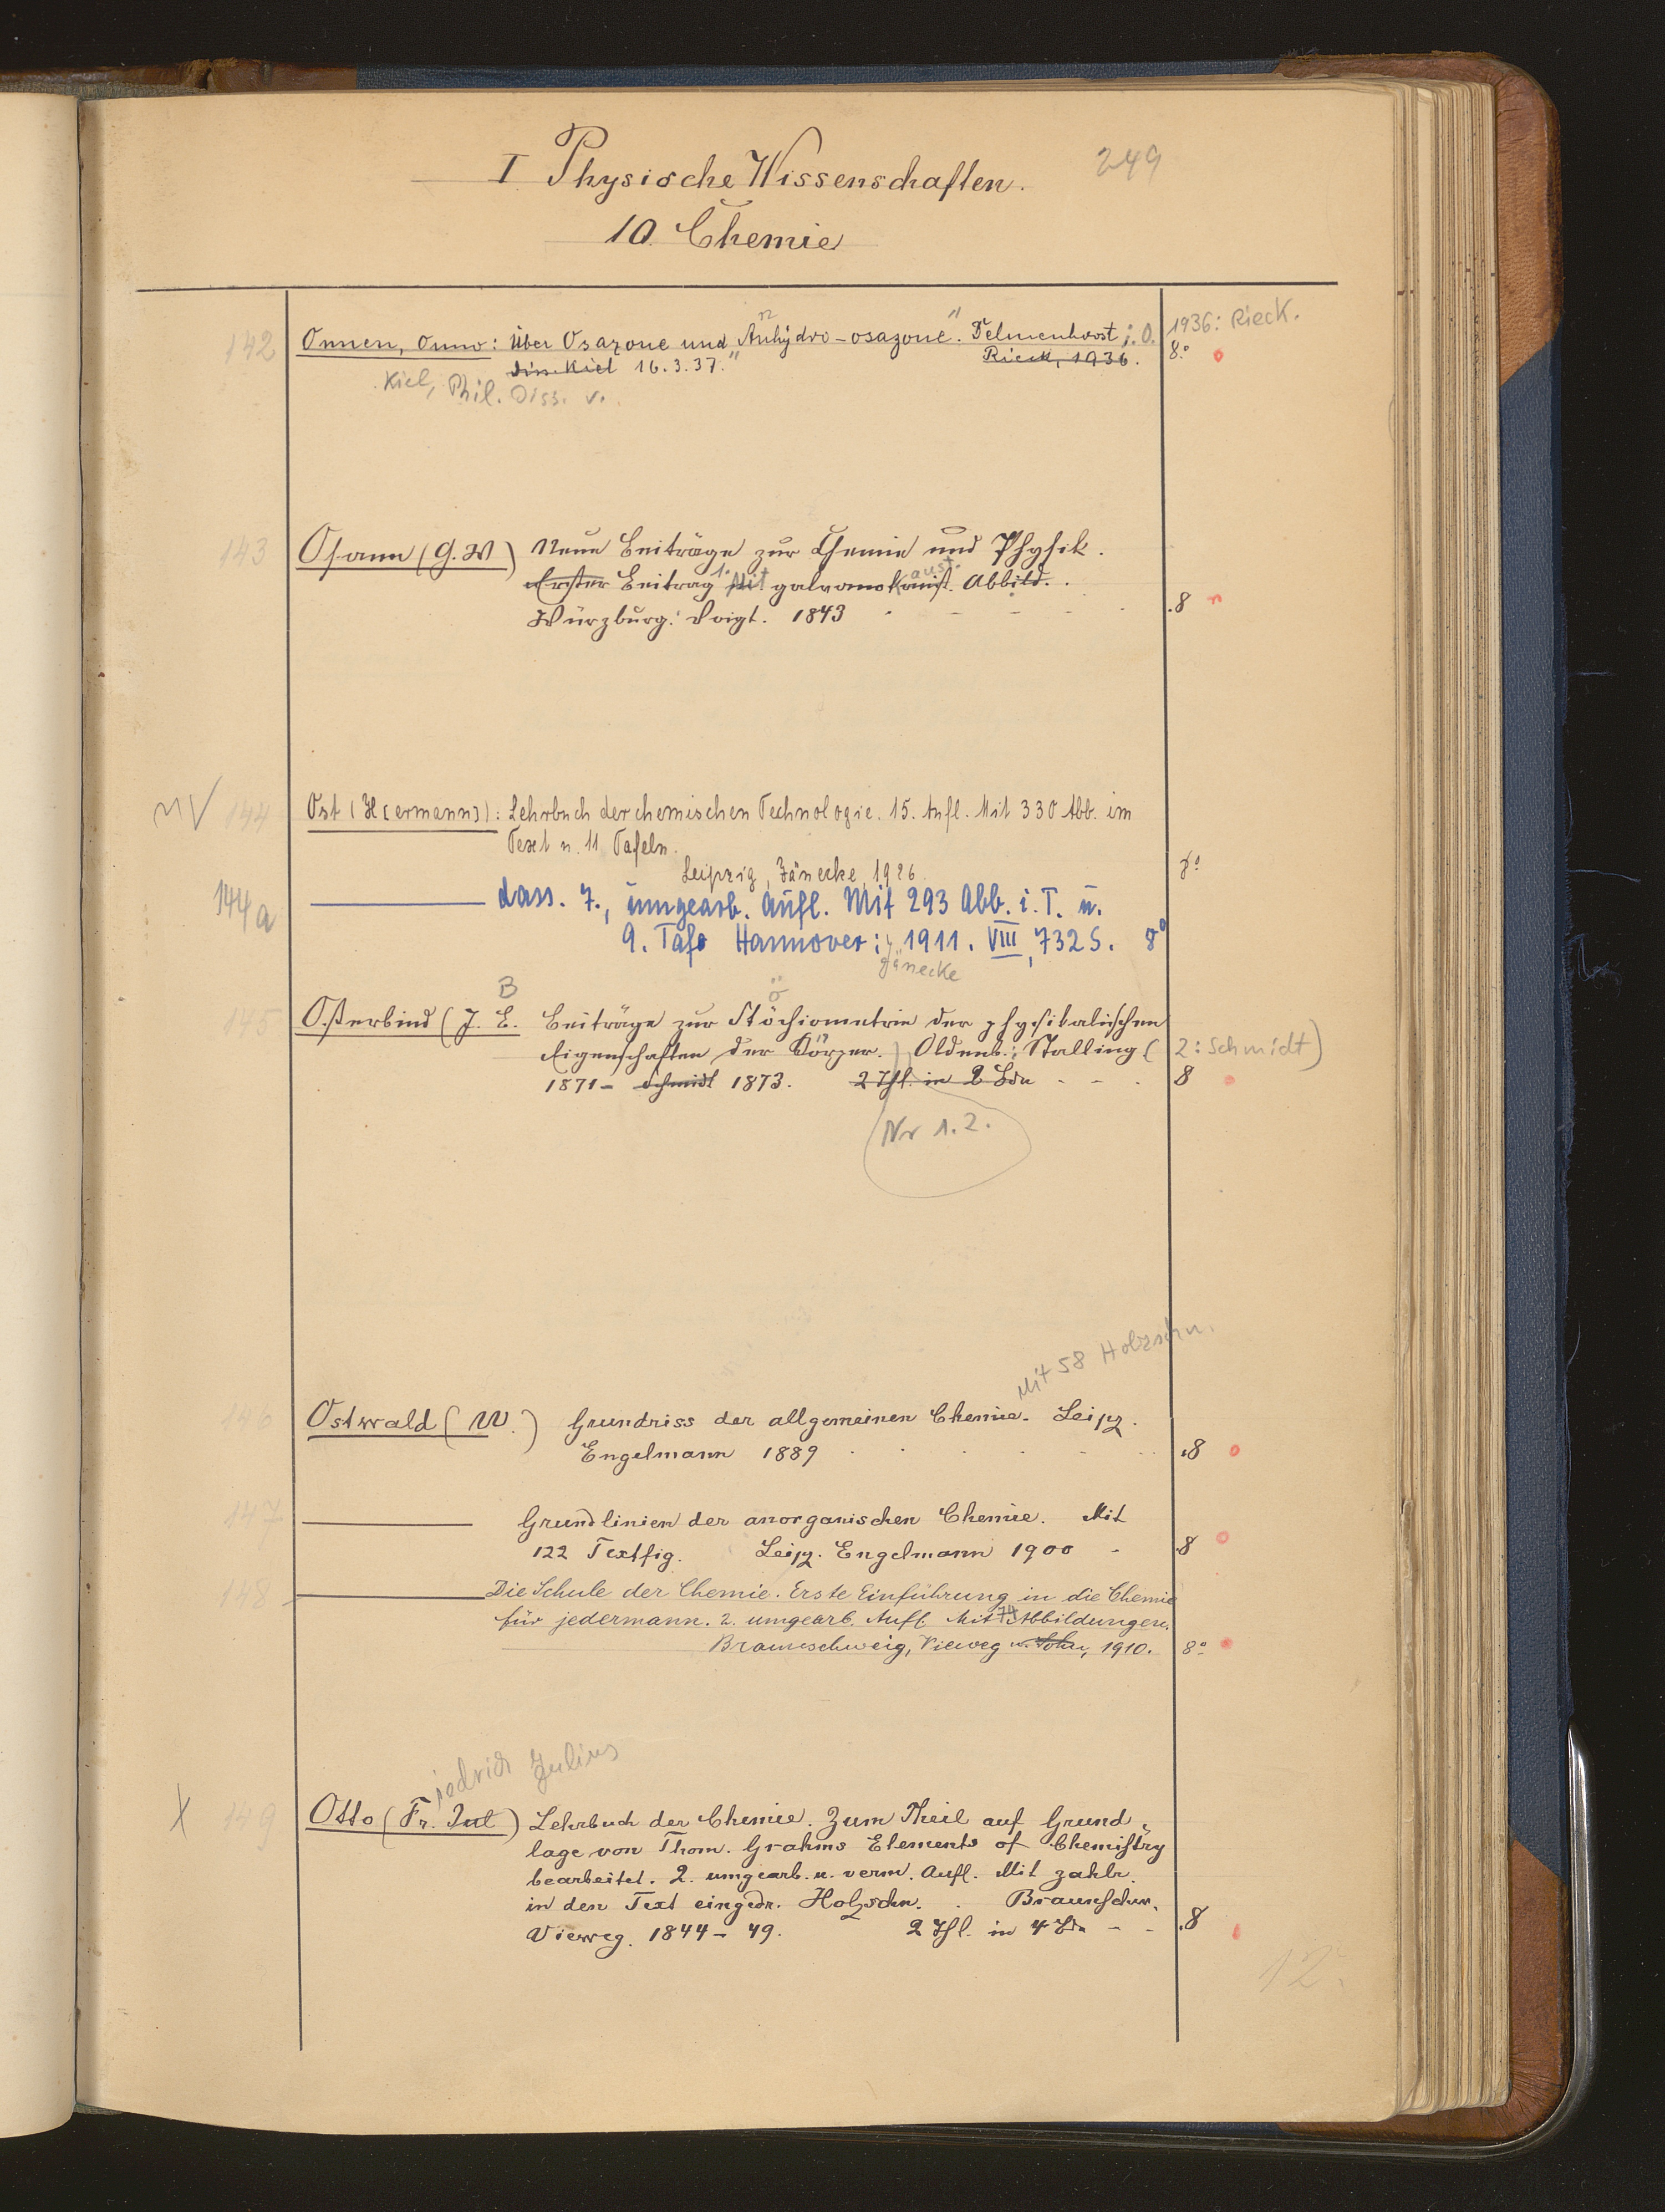 249
I Physische Wissenschaften.
10. Chemie
142 Onnen, Onno: Über Osazone und „Anhydro-osazone". Delmenhorst i. O. 1936: Rieck.
Diss. Kiel 16.3.37." Rieck, 1936. 8°
Kiel, Phil. Diss. v.
143 Osann (G. W) Neue Beiträge zur Chemie und Physik.
Erster Beitrag 1. Mit galvanokaust. Abbild.
Würzburg: Voigt. 1843 8
144 Ost (H[ermann]): Lehrbuch der chemischen Technologie. 15. Aufl. Mit 330 Abb. im
Text u. 11 Tafeln.
Leipzig, Jänecke, 1926. 8°
144a dass. 7., umgearb. Aufl. Mit 293 Abb. i. T. u.
9. Taf. Hannover: 1911. VIII, 732 S. 8°
Jänecke
B ö
145 Osterbind (J. E. Beiträge zur Stöchiometrie der physikalischen
Eigenschaften der Körper.) Oldenb.: Stalling (2: Schmidt)
1871 – Schmidt 1873. 2 Thl. in 2 Bdn 8
Nr 1.2.
Mit 58 Holzschn.
146 Ostwald (W.) Grundriss der allgemeinen Chemie. Leipz.
Engelmann 1889 8
147 Grundlinien der anorganischen Chemie. Mit
122 Textfig. Leipz. Engelmann 1900 8
148 Die Schule der Chemie. Erste Einführung in die Chemie
für jedermann. 2. umgearb. Aufl. Mit 74 Abbildungen.
Braunschweig, Vieweg u. Sohn, 1910. 8°
iedrich Julius
X 149 Otto (Fr. Jul) Lehrbuch der Chemie. Zum Theil auf Grund-
lage von Thom. Grahms Elements of Chemistry
bearbeitet. 2. umgearb. u. verm. Aufl. Mit zahlr.
in den Text eingedr. Holzschn. Braunschw.
Vieweg. 1844 – 49. 2 Thl. in 4 Bdn 8
12.